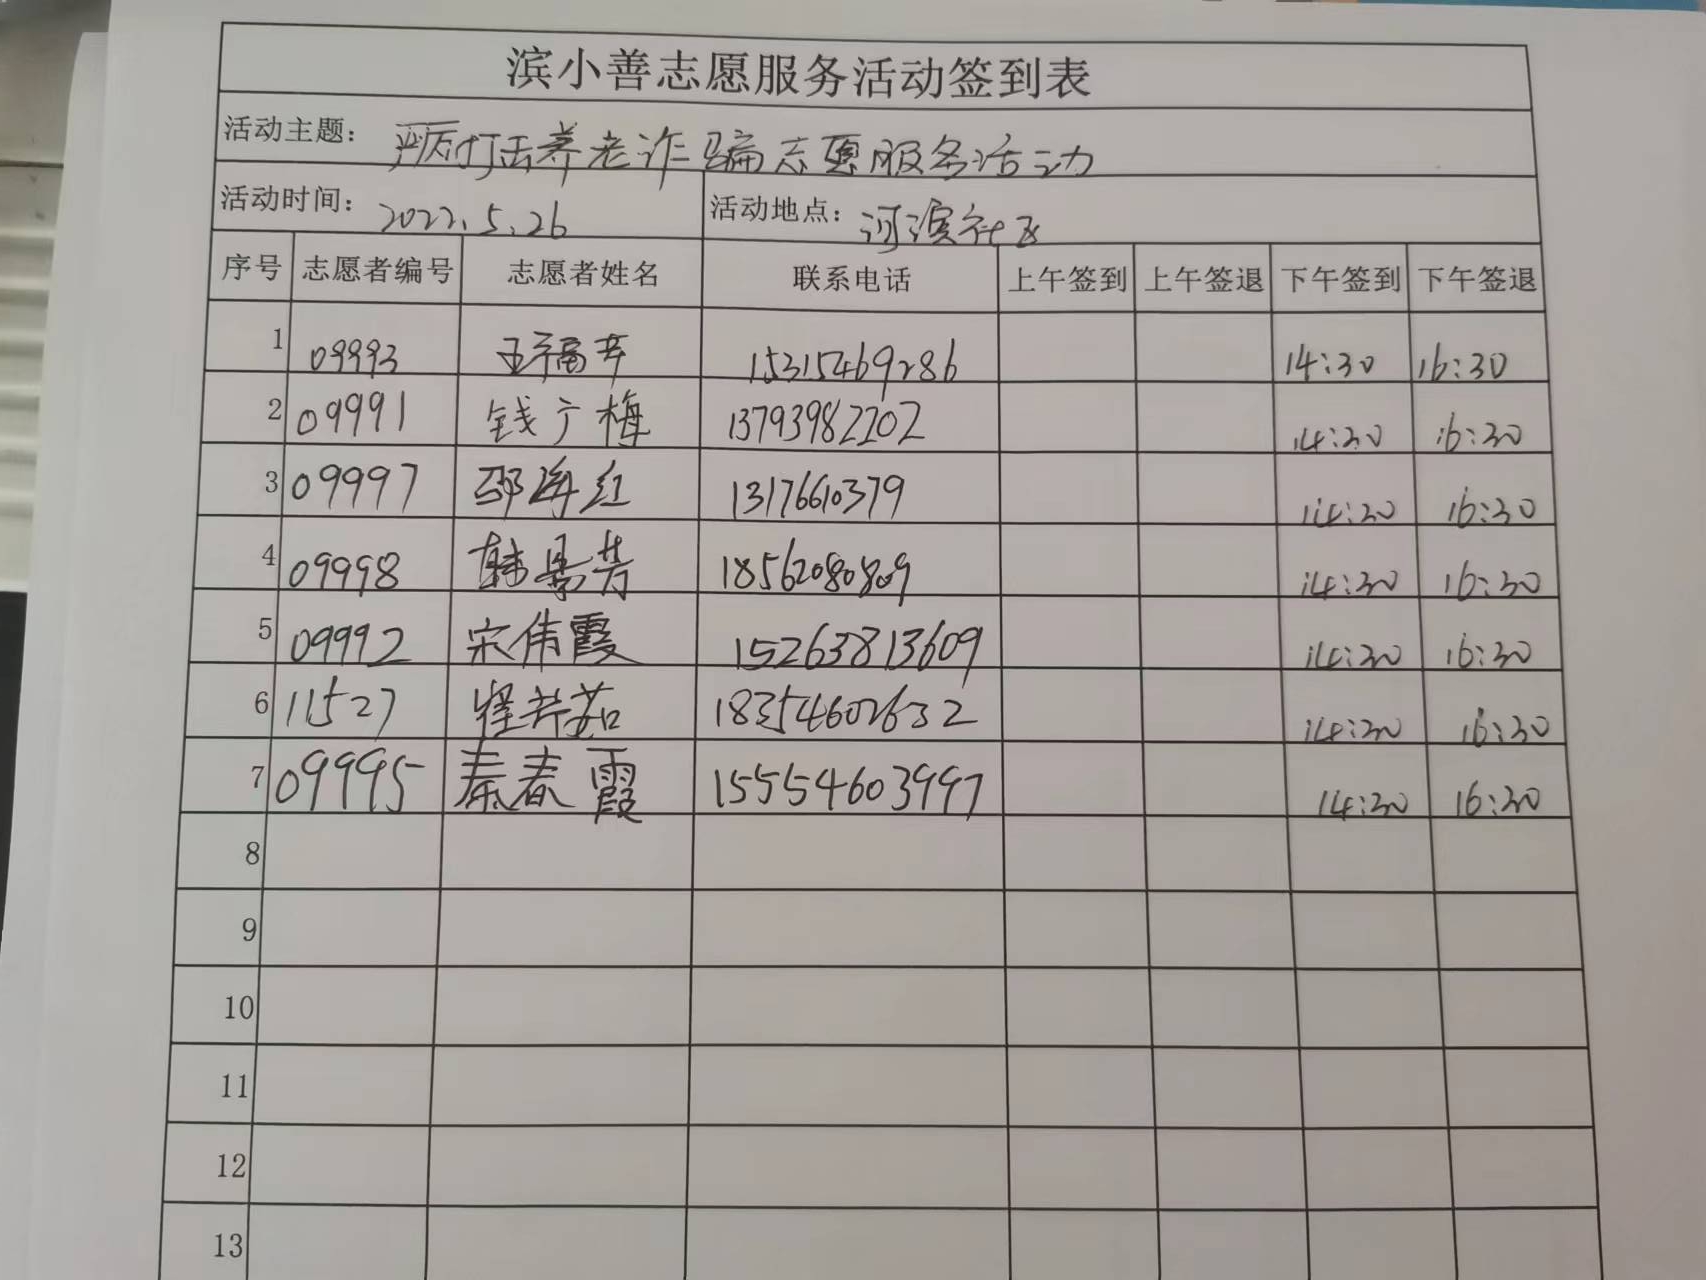 滨小善志愿服务活动签到表
活动主题: 严厉打击养老诈骗志愿服务活动
活动时间: 2022.5.26 活动地点: 河滨社区
序号 志愿者编号 志愿者姓名 联系电话 上午签到 上午签退 下午签到 下午签退
1 09993 王福芹 15315469286 14:30 16:30
2 09991 钱广梅 13793982202 14:30 16:30
3 09997 邵海红 13176610379 14:30 16:30
4 09998 韩景芳 18562080809 14:30 16:30
5 09992 宋伟霞 15263813609 14:30 16:30
6 11527 18354602632 14:30 16:30
7 09995 秦春霞 15554603997 14:30 16:30
8
9
10
11
12
13